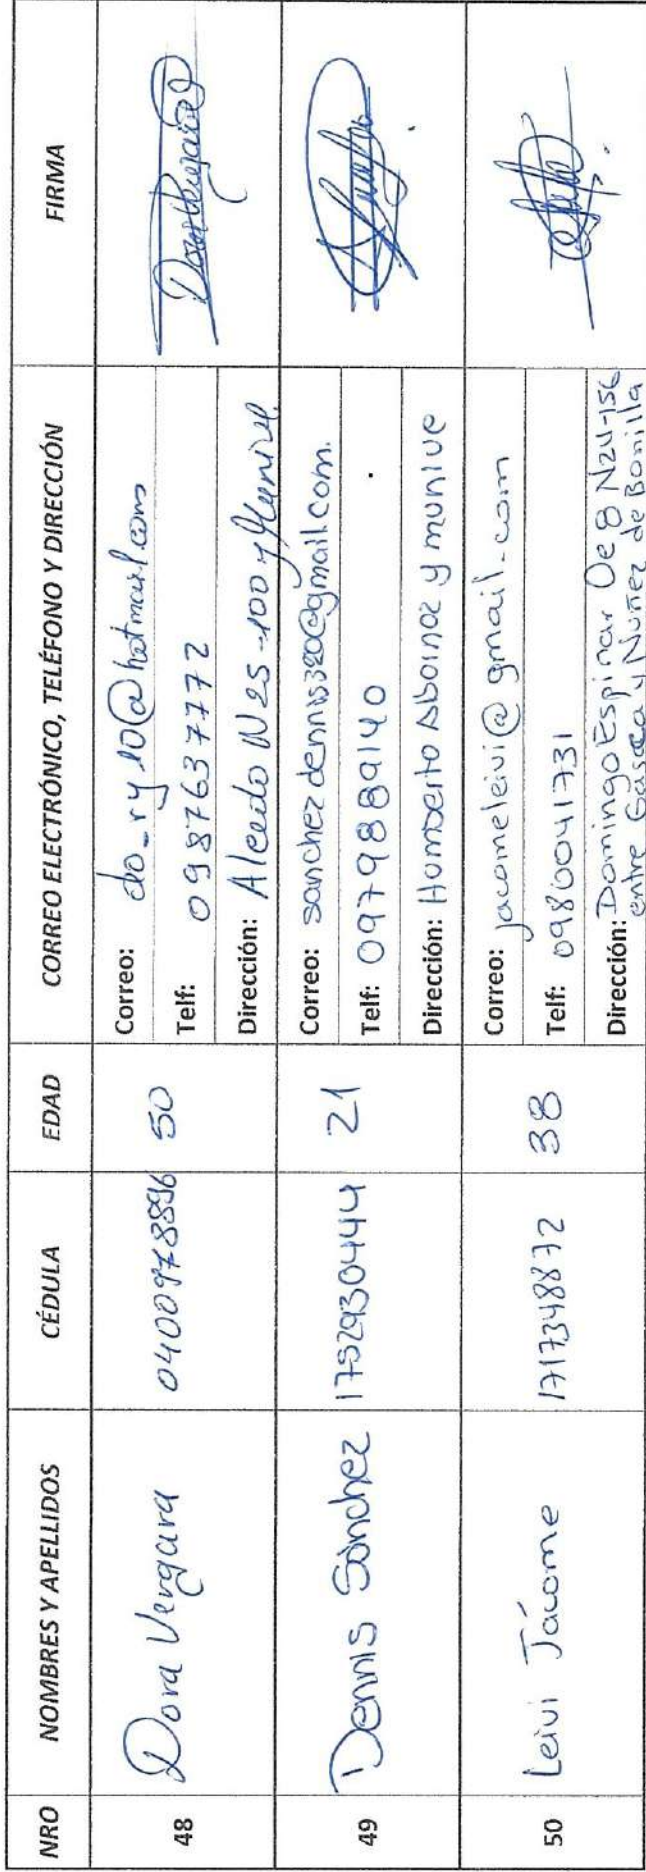 NRO NOMBRES Y APELLIDOS CÉDULA EDAD CORREO ELECTRÓNICO, TELÉFONO Y DIRECCIÓN FIRMA
48 Dora Vergara 0400978896 50
Correo: do_ry10@hotmail.com
Telf: 0987637772
Dirección: Alcedo N25-100 y
49 Dennis Sánchez 1752930444 21
Correo: sanchezdennis320@gmail.com.
Telf: 0979889140
Dirección: Humberto Albornoz y munive
50 Leivi Jácome 1717348872 38
Correo: jacomeleivi@gmail.com
Telf: 0980041731
Dirección: Domingo Espinar Oe8 N24-156
entre Gasca y Nuñez de Bonilla